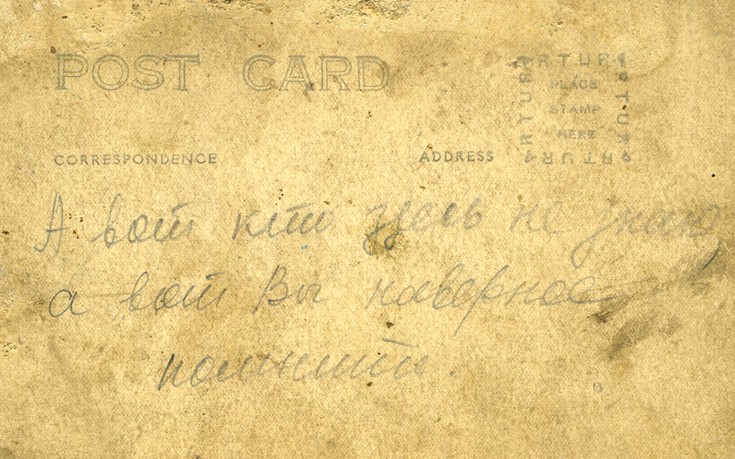 POST CARD
ARTURA
PLACE
STAMP
HERE
ARTURA
ARTURA
ARTURA
CORRESPONDENCE
ADDRESS
А вот кто здесь не знаю,
а вот Вы наверное
помните.